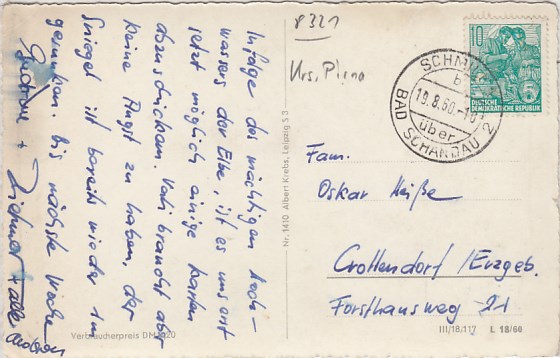 Infolge des mächtigen Hoch-
wassers der Elbe, ist es uns erst
jetzt möglich einige Karten
abzuschicken. Vati braucht aber
keine Angst zu haben, der
Spiegel ist bereits wieder im
gesunken. Bis nächste Woche
+ Dietmar + alle andern
8321
Krs. Pirna
10
DEUTSCHE
DEMOKRATISCHE REPUBLIK
SCHMILKA
19.8.60.-10
über
BAD SCHANDAU 2
Fam.
Oskar Heiße
Crottendorf/Erzgeb.
Forsthausweg 21
Nr. 1410 Albert Krebs, Leipzig S 3
Verbraucherpreis DM 0,20
III/18.117 L 18/60